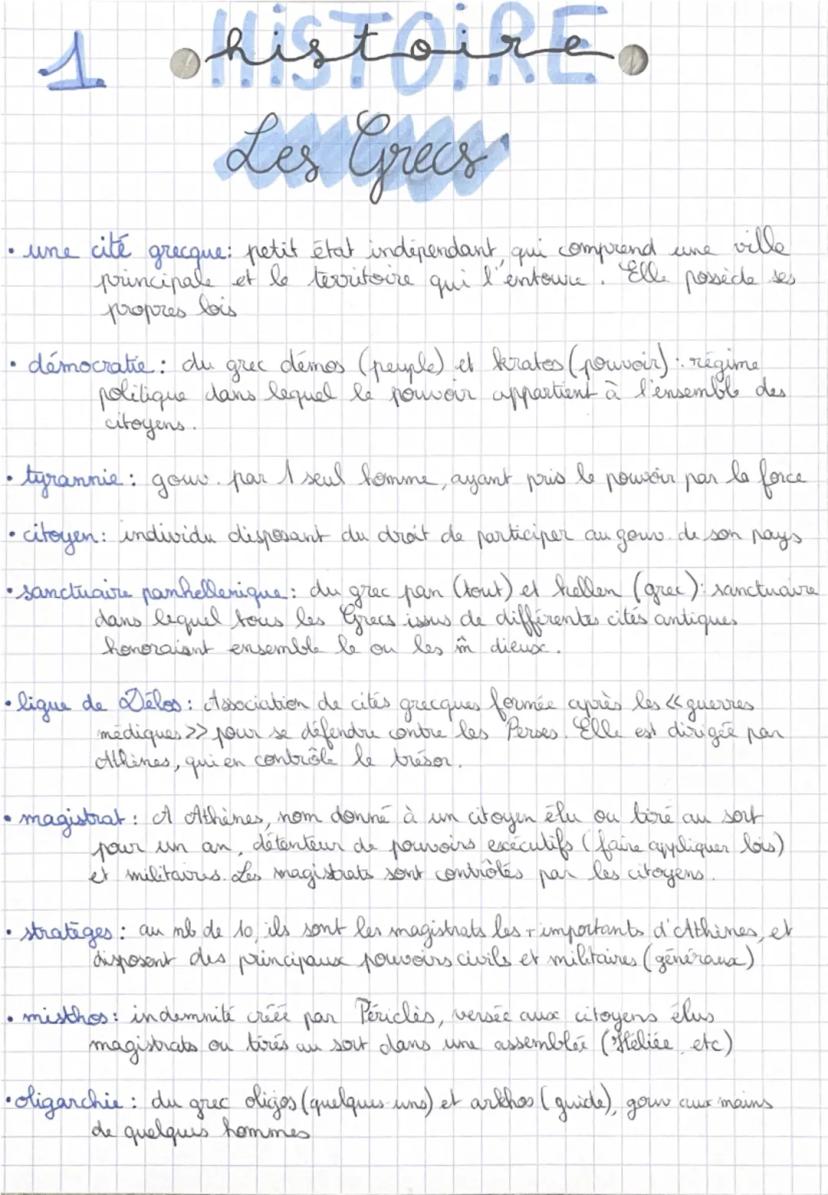 1
HISTOIRE
histoire
Les Grecs
• une cité grecque : petit état indépendant, qui comprend une ville
principale et le territoire qui l'entoure. Elle possède ses
propres lois
• démocratie : du grec démos (peuple) et kratos (pouvoir) : régime
politique dans lequel le pouvoir appartient à l'ensemble des
citoyens.
• tyrannie : gouv. par 1 seul homme, ayant pris le pouvoir par la force
• citoyen : individu disposant du droit de participer au gouv. de son pays
• sanctuaire panhellenique : du grec pan (tout) et hellen (grec) : sanctuaire
dans lequel tous les Grecs issus de différentes cités antiques
honoraient ensemble le ou les m̂ dieux.
• ligue de Délos : Association de cités grecques formée après les << guerres
médiques >> pour se défendre contre les Perses. Elle est dirigée par
Athènes, qui en contrôle le trésor.
• magistrat : A Athènes, nom donné à un citoyen élu ou tiré au sort
pour un an, détenteur de pouvoirs exécutifs (faire appliquer lois)
et militaires. Les magistrats sont contrôlés par les citoyens.
• stratèges : au nb de 10, ils sont les magistrats les + importants d'Athènes, et
disposent des principaux pouvoirs civils et militaires (généraux)
• misthos : indemnité créée par Périclès, versée aux citoyens élus
magistrats ou tirés au sort dans une assemblée (Héliée, etc)
• oligarchie : du grec oligos (quelques-uns) et arkhos (guide), gouv aux mains
de quelques hommes